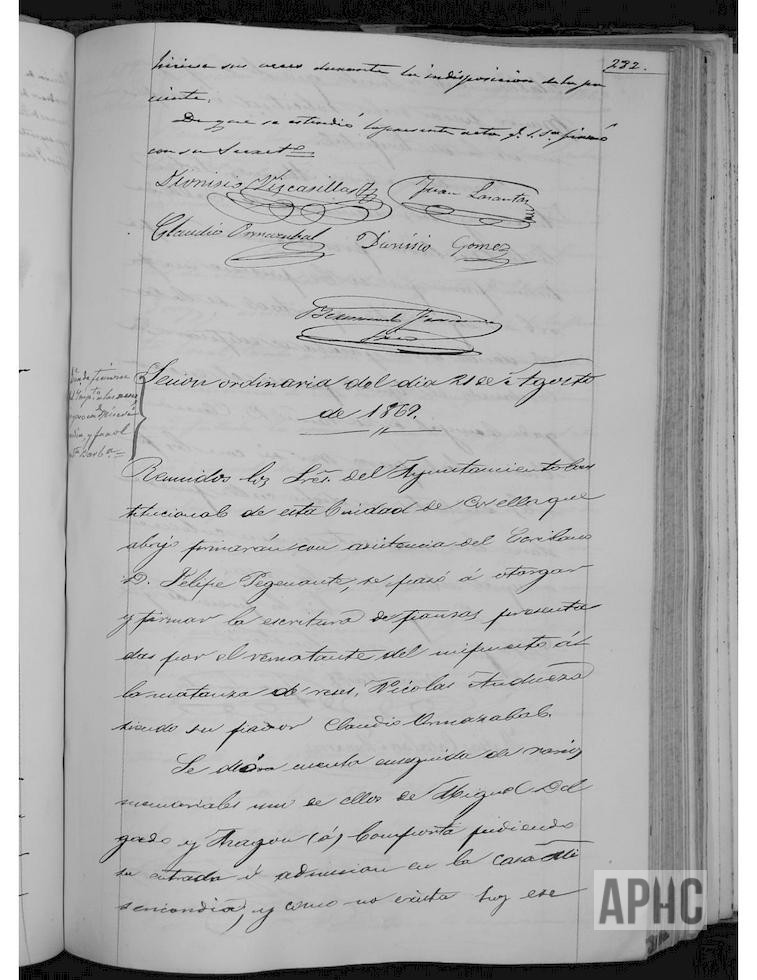 232.
hiciese sus veces durante la indisposicion de la pa
ciente.
De que se estendió la presente acta q.e S. Sria. firmó
con su Secret.o
Dionisio Viscasillas
Juan
Claudio Ormazabal
Dionisio Gomez
Sesion ordinaria del dia 21 de Agosto
de 1869.
Reunidos los Sres. del Ayuntamiento Cons
titucional de esta Ciudad de Corella que
abajo firmarán con asistencia del Escribano
D. Felipe Pegenaute, se pasó á otorgar
y firmar la escritura de fianzas presenta
das por el rematante del impuesto á
la matanza de reses, Nicolas Andueza
siendo su fiador Claudio Ormazabal.
Se dió cuenta enseguida de varios
memoriales uno de ellos de Miguel Del
gado y Aragon (á) Componta pidiendo
su entrada ó admision en la casa Mi
sericordia, y como no exista hoy ese
APHC